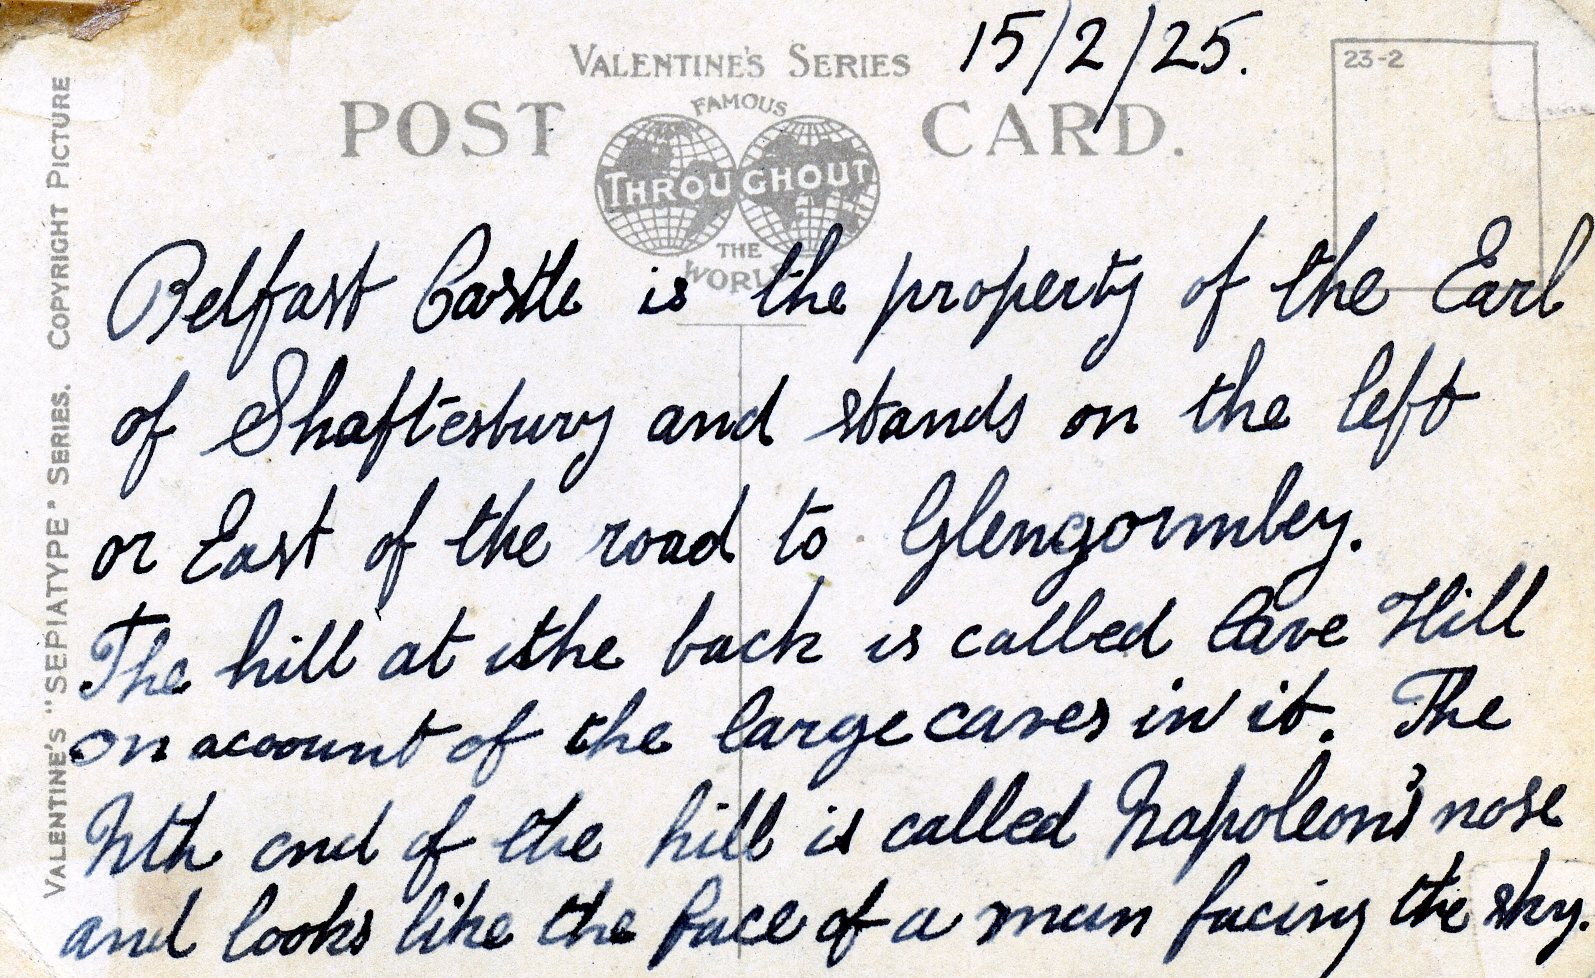 15/2/25.
VALENTINE'S SERIES
23-2
POST CARD.
FAMOUS
THROUGHOUT
THE
WORLD
Belfast Castle is the property of the Earl
of Shaftesbury and stands on the left
or East of the road to Glengormley.
The hill at the back is called Cave Hill
on account of the large caves in it. The
Nth end of the hill is called Napoleon's nose
and looks like the face of a man facing the sky.
VALENTINE'S "SEPIATYPE" SERIES. COPYRIGHT PICTURE